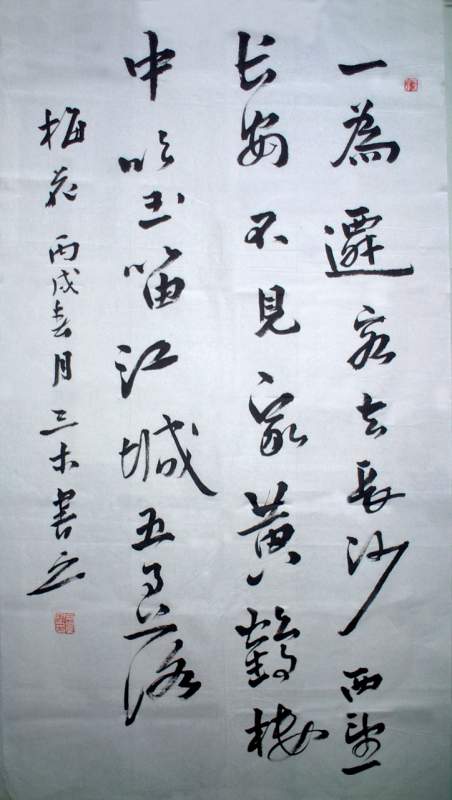 一為遷客去長沙西望
长安不見家黄鶴楼
中吹玉笛江城五月落
梅花 丙戌春月三木書之